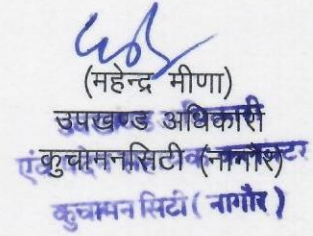 (महेन्द्र मीणा)
उपखण्ड अधिकारी
कुचामनसिटी (नागौर)
कुचामन सिटी ( नागौर )